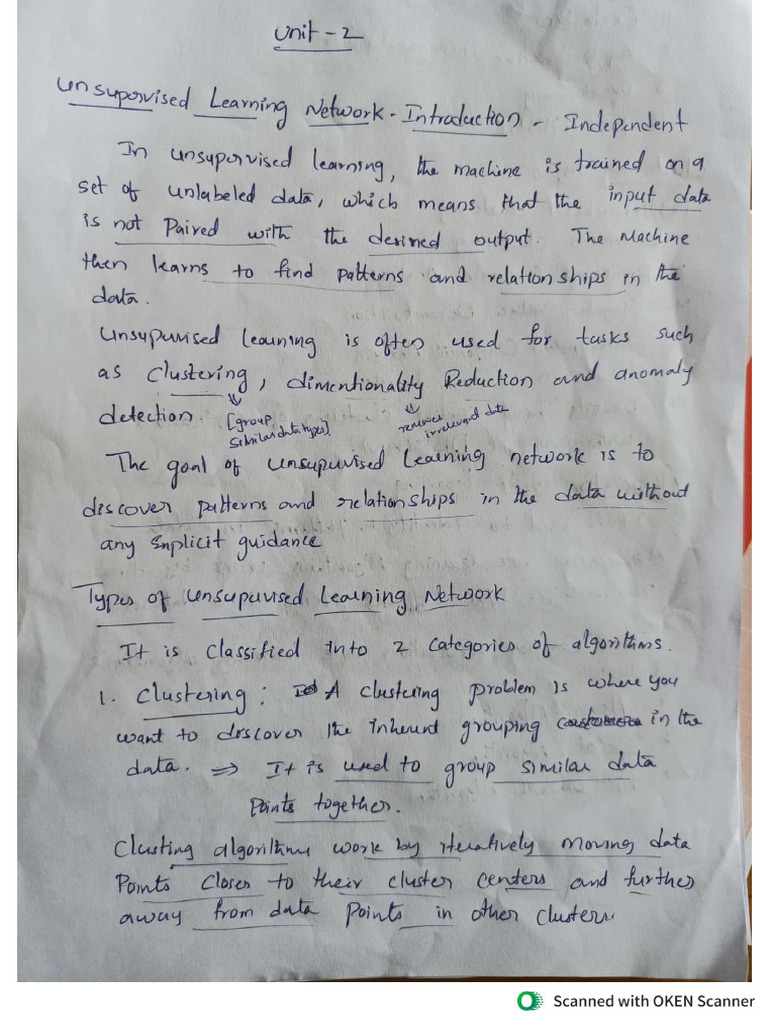 Unit - 2
Unsupervised Learning Network - Introduction - Independent
In unsupervised learning, the machine is trained on a
set of unlabeled data, which means that the input data
is not Paired with the desired output. The Machine
then learns to find patterns and relationships in the
data.
Unsupervised learning is often used for tasks such
as clustering, dimentionality Reduction and anomaly
detection. [group removes
similar data types]. irrelevant data
The goal of unsupervised Learning network is to
discover patterns and relationships in the data without
any Explicit guidance
Types of unsupervised Learning Network
It is classified into 2 categories of algorithms.
1. Clustering : A clustering problem is where you
want to discover the inherent grouping in the
data. ⇒ It is used to group similar data
Points together.
Clusting algorithms work by iteratively moving data
Points closer to their cluster centers and further
away from data points in other clusters.
Scanned with OKEN Scanner